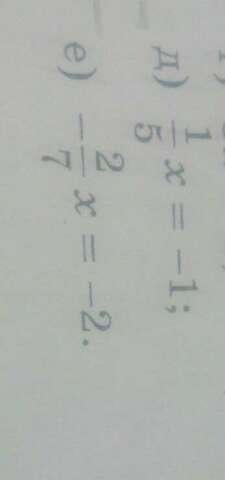 д) 1/5 x = −1;
е) −2/7 x = −2.